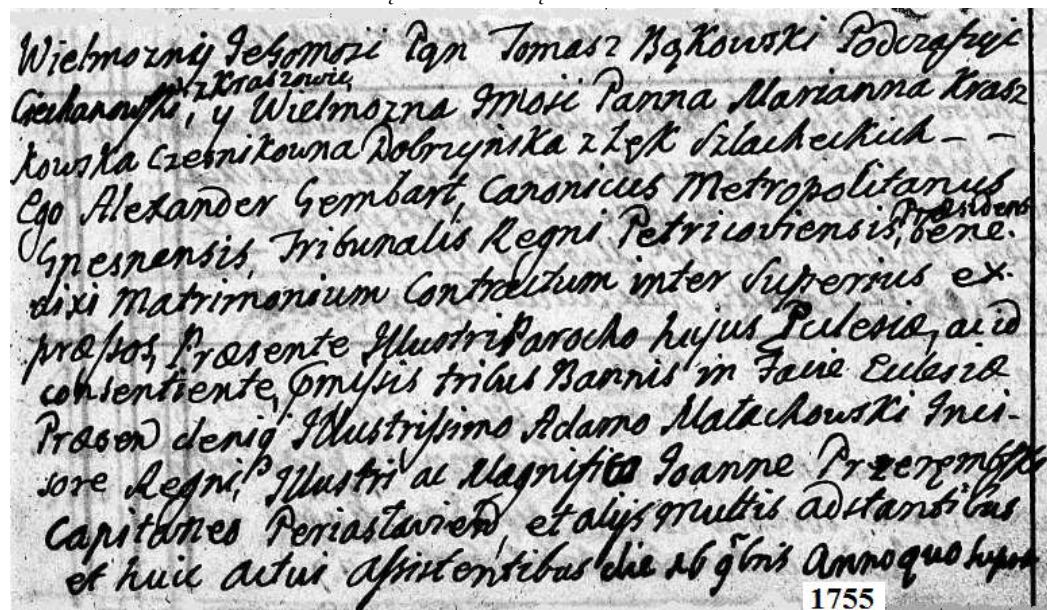 Wielmozny JeGomosc Pan Tomasz Bąkowski Podczaszyc
z Kraszowic
Ciechanowski, y Wielmozna Jmosc Panna Marianna Krasz
kowska Czesnikowna Dobrzyńska z Łęk Szlacheckich - -
Ego Alexander Gembart, Canonicus Metropolitanus
Præsidens
Gnesnensis, Tribunalis Regni Petricoviensis, bene-
dixi Matrimonium Contractum inter Superius ex-
præssos, Præsente Illustri Parocho hujus Eclesiæ, ac id
consentiente, omissis tribus Bannis in Facie Eclesiæ
Præsen deniq Illustrissimo Adamo Małachowski Inci-
sore Regni, Illustri ac Magnifico Joanne Przerembski
Capitaneo Periaslavien, et alijs multis adstantibus
et huic actui assistentibus die 26 9bris Anno quo supra
1755